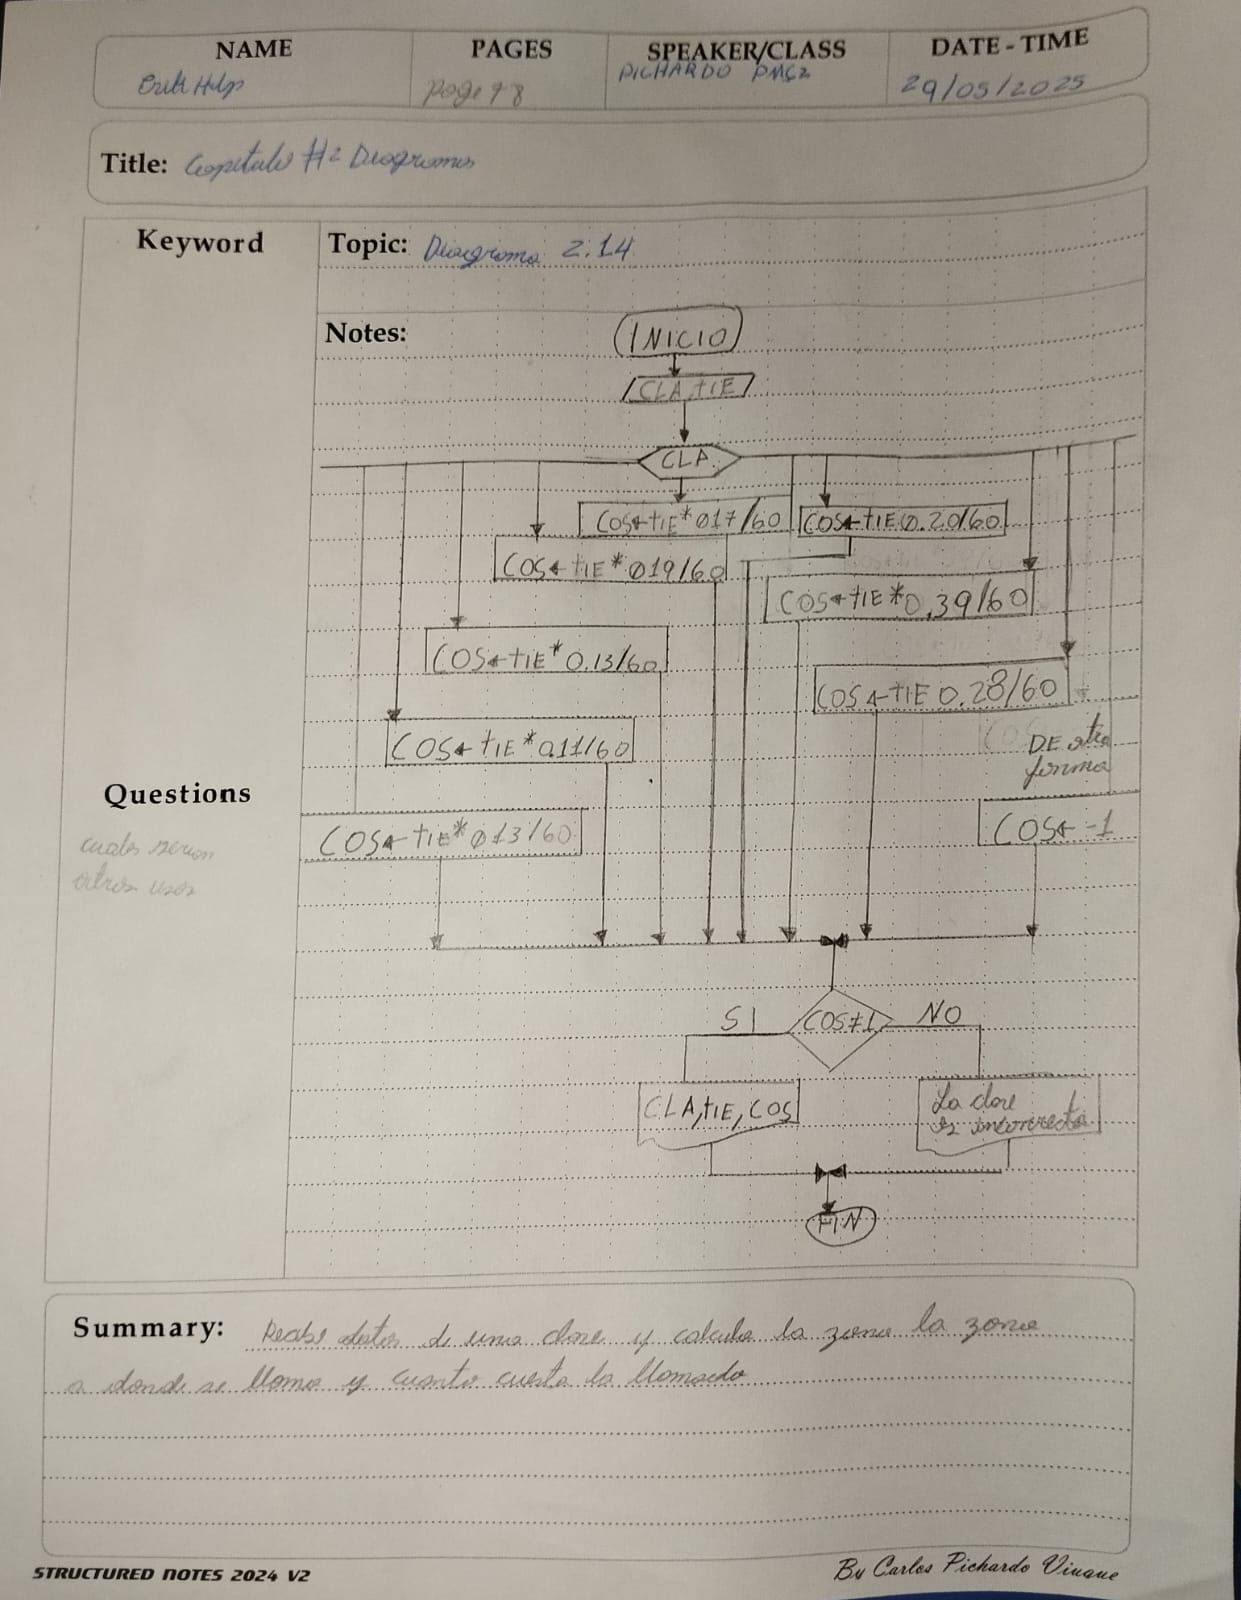 NAME
PAGES
SPEAKER/CLASS
DATE - TIME
page 98
PICHARDO PMS2
29/05/2025
Title: Capitulo #2 Diagramas
Keyword
Topic: Diagrama 2.14
Notes:
INICIO
CLA,tIE
CLA
COS←tIE*017/60
COS←tIE0.20/60
COS←tIE*019/60
COS←tIE*0.39/60
COS←tIE*0.13/60
COS←tIE 0.28/60
COS←tIE*0.11/60
DE otra
forma
Questions
COS←TIE*013/60
COS← -1
cuales serian
otros usos
SI
COS≠1
NO
CLA,tIE,COS
La clave
es incorrecta
FIN
Summary: Recibe datos de una clave y calcula la zona la zona
a donde se llama y cuanto cuesta la llamada
STRUCTURED NOTES 2024 V2
By Carlos Pichardo Viuque